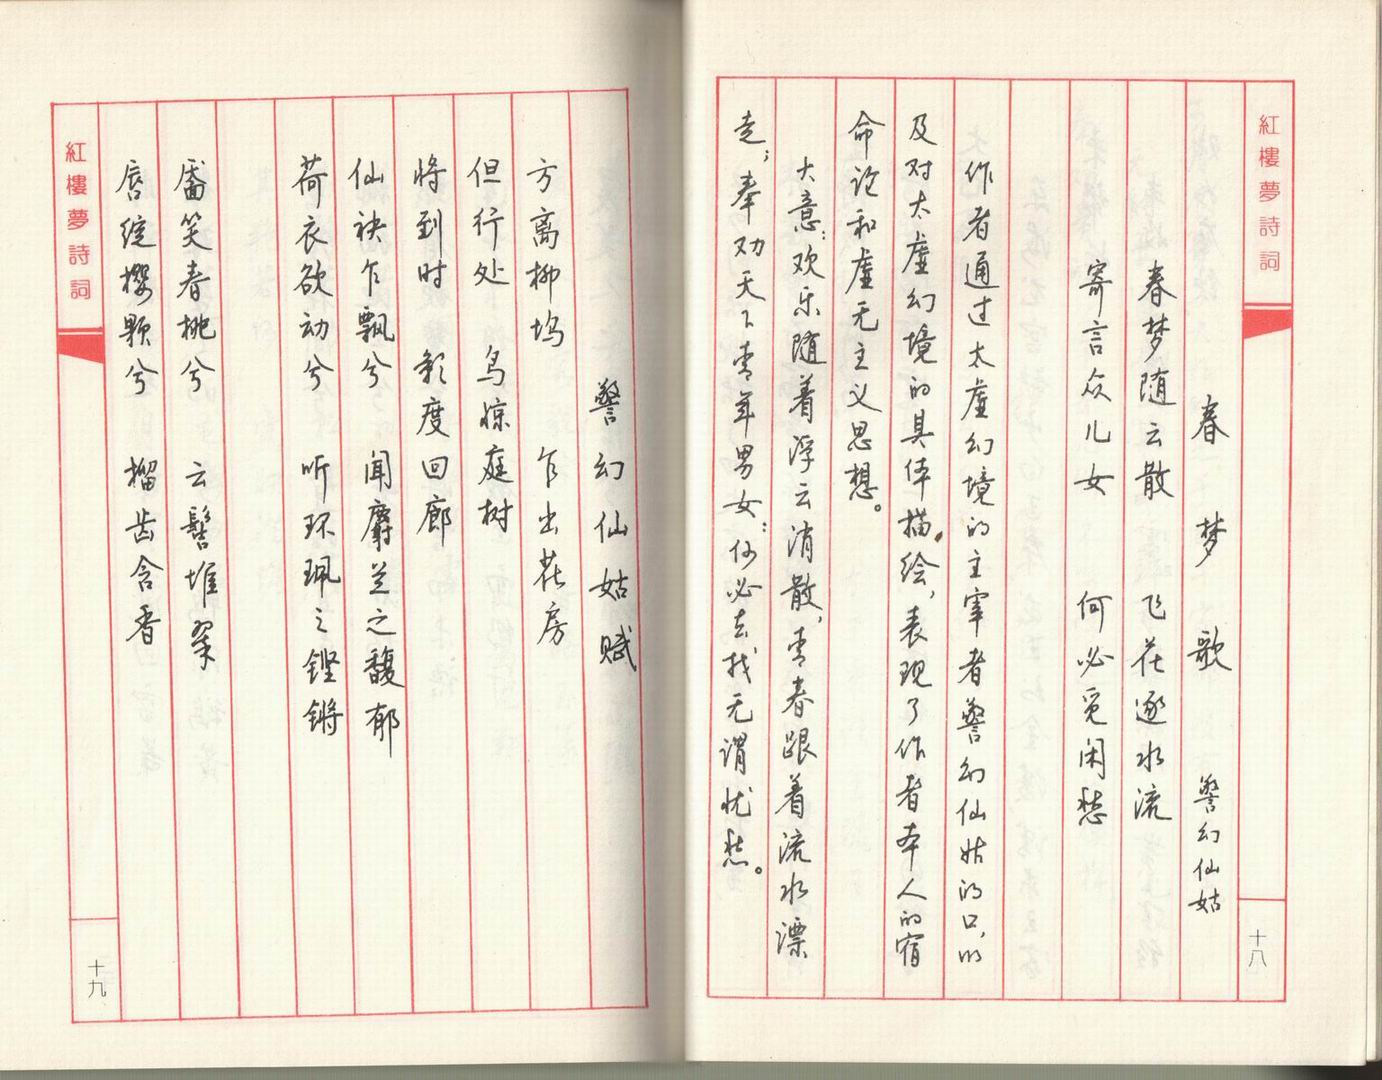 紅樓夢詩詞
十八
春梦歌 警幻仙姑
春梦随云散 飞花逐水流
寄言众儿女 何必觅闲愁
作者通过太虚幻境的主宰者警幻仙姑的口，以
及对太虚幻境的具体描绘，表现了作者本人的宿
命论和虚无主义思想。
大意：欢乐随着浮云消散，青春跟着流水漂
走；奉劝天下青年男女：何必去找无谓忧愁。
警幻仙姑赋
方离柳坞 乍出花房
但行处 鸟惊庭树
将到时 影度回廊
仙袂乍飘兮 闻麝兰之馥郁
荷衣欲动兮 听环珮之铿锵
靥笑春桃兮 云髻堆翠
唇绽樱颗兮 榴齿含香
紅樓夢詩詞
十九